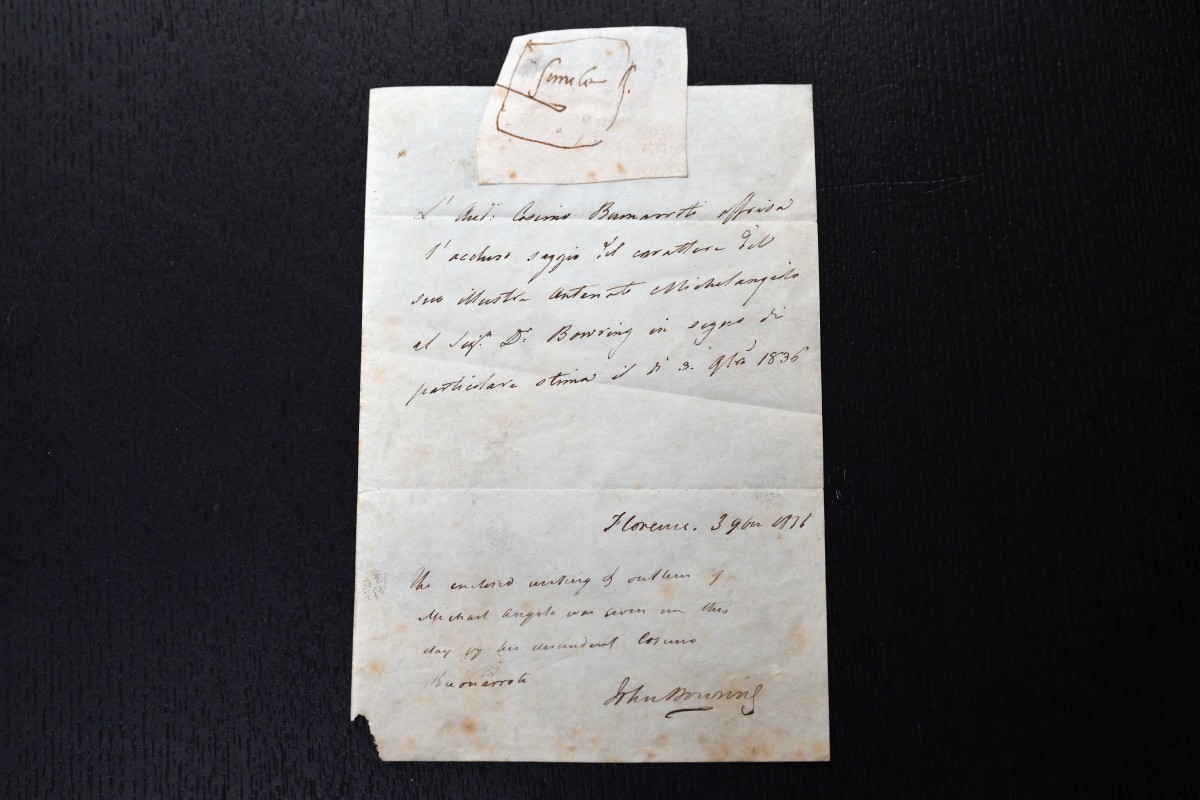 simile
L' Cosimo Buonarroti offriva
l'accluso saggio del carattere del
suo illustre Antenato Michelangiolo
al Sigr. Dr. Bowring in segno di
particolare stima il dì 3. 9bre 1836
Florence. 3 9bre 1836
The enclosed writing & outlines of
Michael Angelo was given me this
day by his descendant Cosimo
Buonarroti
John Bowring